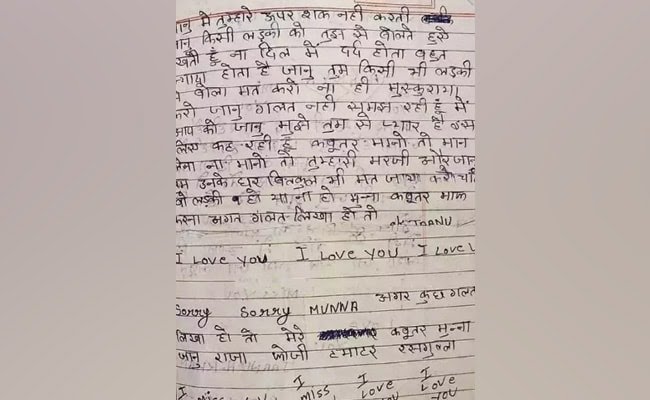 जानु मै तुम्हारे ऊपर शक नही करती
जानु किसी लड़की को तुझ से बोलते हुऐ
हूँ ना दिल में दर्द होता बहुत
होता है जानु तुम किसी भी लड़की
बोला मत करो ना ही मुस्कुराया
करो जानु गलत नही समझ रही हूँ मैं
आप को जानु मुझे तुम से प्यार है इस
लिए कह रही हूँ कबूतर मानो तो मान
लेना ना मानो तो तुम्हारी मरजी और जानु
उनके घर बिलकुल भी मत जाया करो
लड़की हो या ना हो मुन्ना कबूतर माफ
करना अगर गलत लिखा हो तो
I LOVE YOU I LOVE YOU I LOVE
Sorry Sorry MUNNA अगर कुछ गलत
लिखा हो तो मेरे कबूतर मुन्ना
जानु राजा टमाटर रसगुल्ला
I I I
miss, LOVE LOVE
YOU